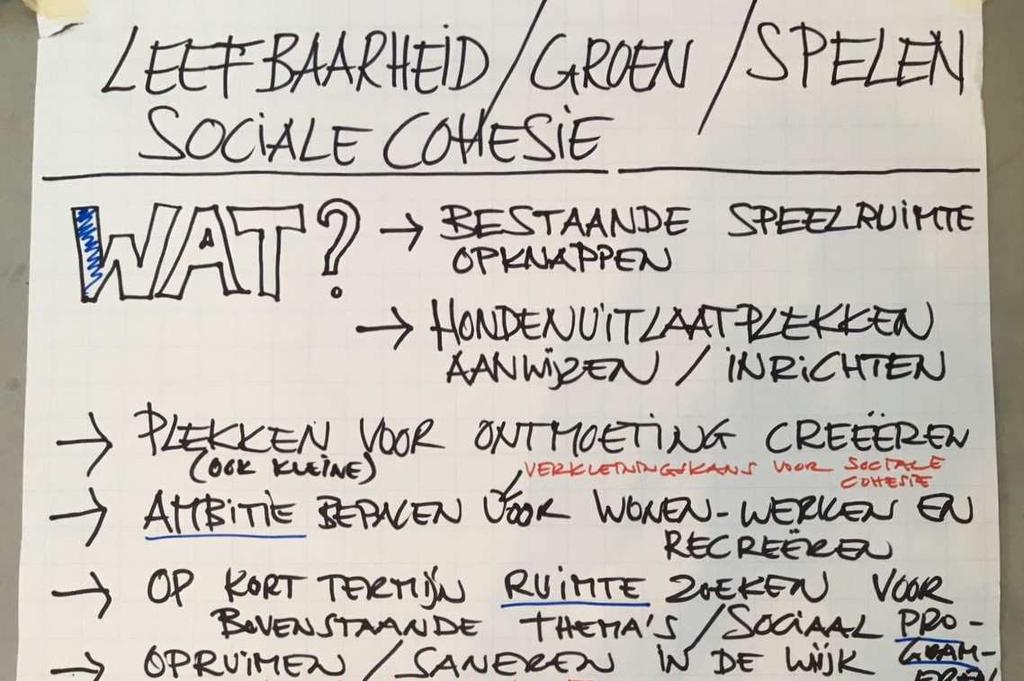 LEEFBAARHEID / GROEN / SPELEN
SOCIALE COHESIE
WAT? → BESTAANDE SPEELRUIMTE
OPKNAPPEN
→ HONDENUITLAATPLEKKEN
AANWIJZEN / INRICHTEN
→ PLEKKEN VOOR ONTMOETING CREEËREN
(OOK KLEINE) VERKLEININGSKANS VOOR SOCIALE
COHESIE
→ AMBITIE BEPALEN VOOR WONEN-WERKEN EN
RECREËREN
→ OP KORT TERMIJN RUIMTE ZOEKEN VOOR
BOVENSTAANDE THEMA'S / SOCIAAL PRO-
→ OPRUIMEN / SANEREN IN DE WIJK GRAM-